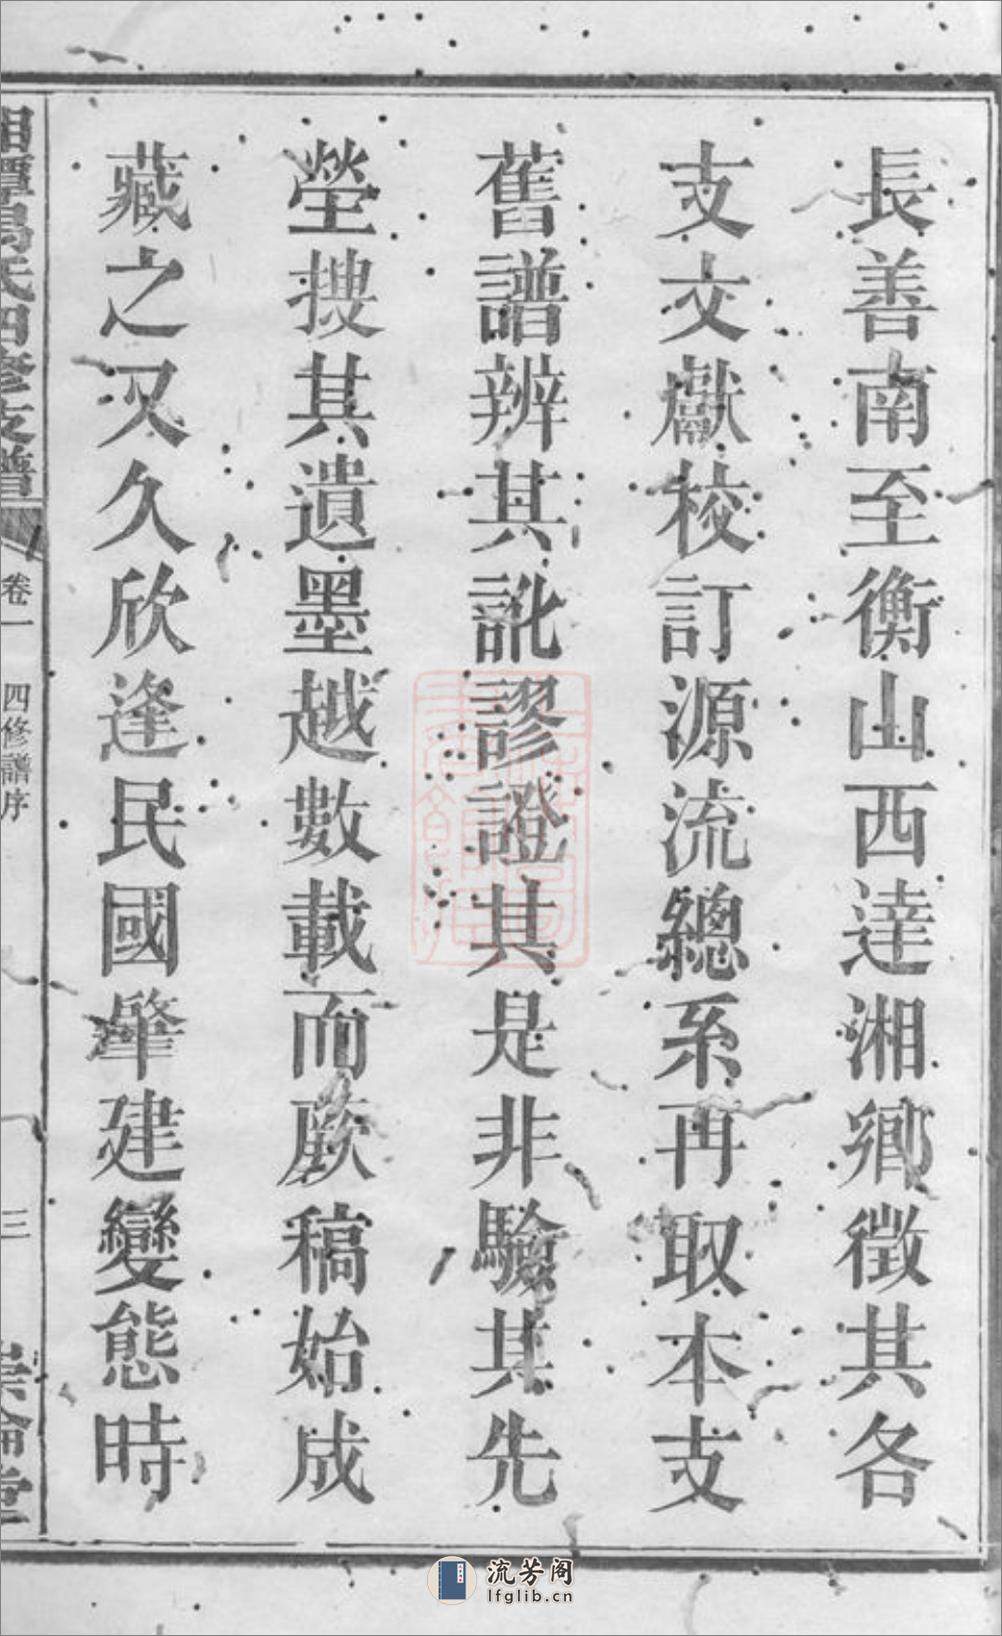 長善南至衡山西達湘鄉徵其各
支文獻校訂源流總系再取本支
舊譜辨其訛謬證其是非驗其先
塋搜其遺墨越數載而厥稿始成
藏之又久欣逢民國肇建變態時
湘潭馮氏四修支譜
卷一
四修譜序
三
崇倫堂
流芳阁
lfglib.cn